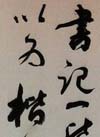 書記一
以為楷